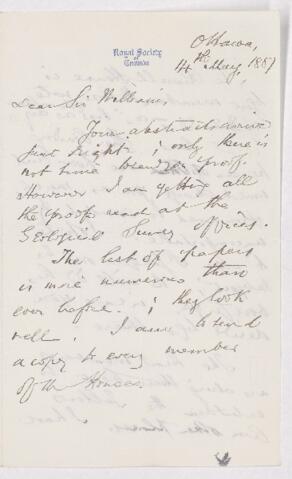 Royal Society
of
Canada
Ottawa,
14th May, 1887
Dear Sir William,
Your abstracts arrived
just right; only there is
not time to send you proofs.
However I am getting all
the proofs read at the
Geological Survey offices.
The list of papers
is more numerous than
ever before. & they look
well. I am to send
a copy to every member
of the Houses.